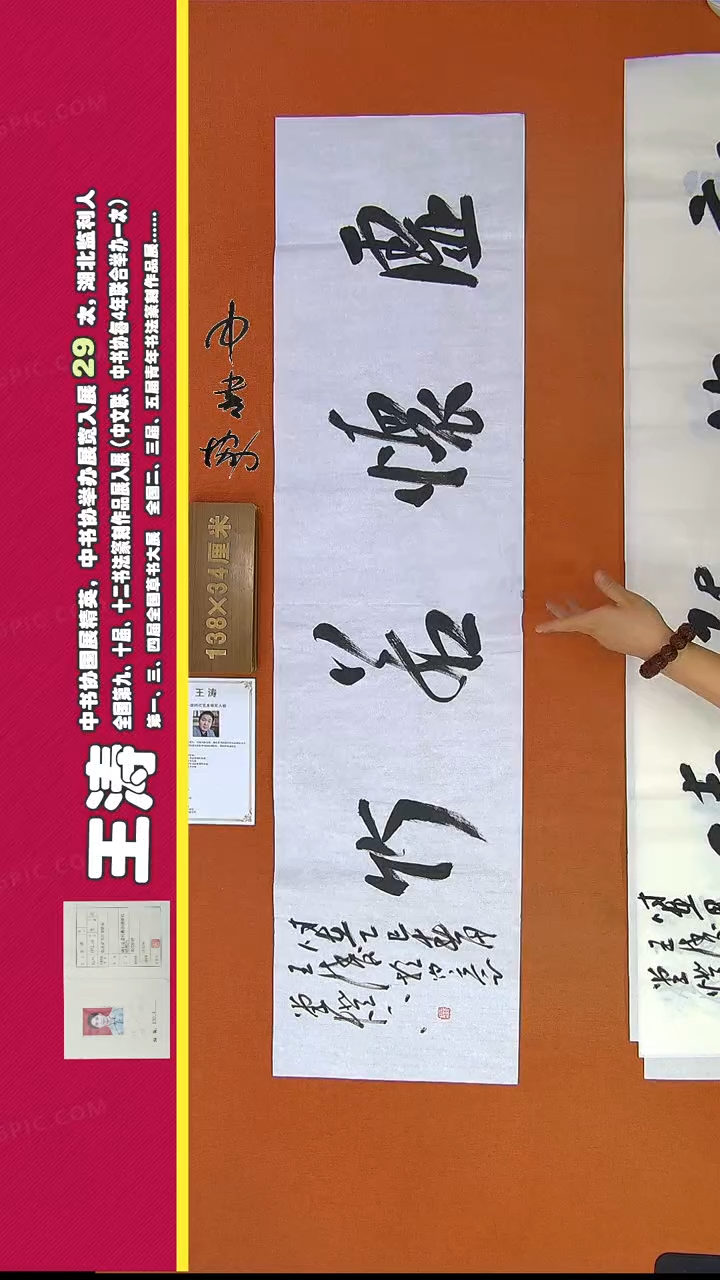 王涛
中书协国展精英，中书协举办展赛入展 29 次，湖北监利人
全国第九、十届、十二书法篆刻作品展入展（中文联、中书协每4年联合举办一次）
第一、三、四届全国草书大展 全国二、三届、五届青年书法篆刻作品展......
中书协
138×34厘米
王涛
虚懷若竹
乙巳春月